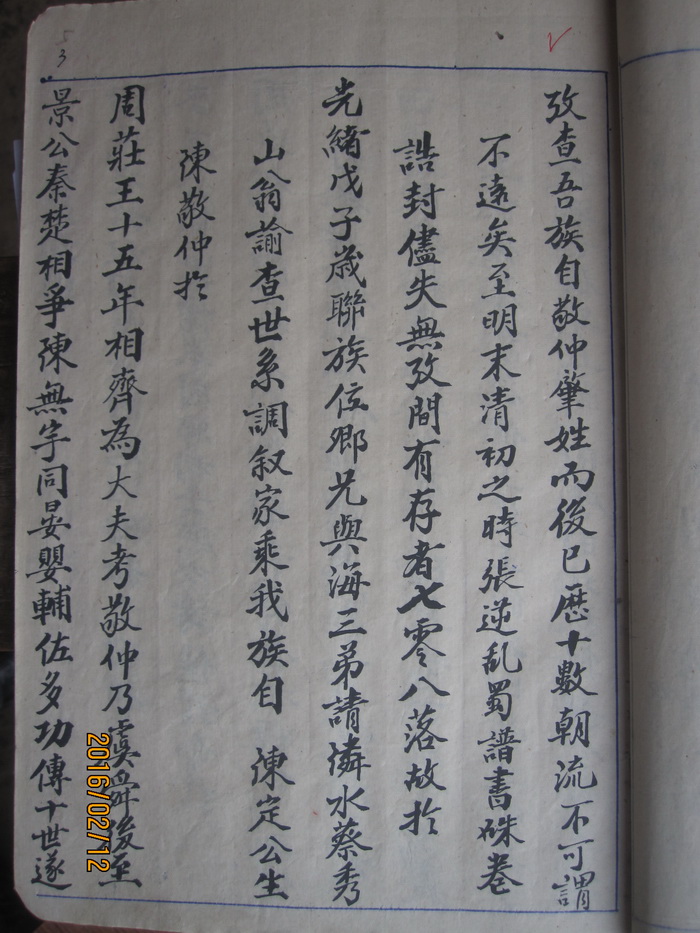 攷查吾族自敬仲肇姓而後已歷十數朝流不可謂
不遠矣至明末清初之時張逆乱蜀譜書硃卷
誥封儘失無攷間有存者七零八落故於
光緒戊子歲聯族位鄉兄與海三弟請憐水蔡秀
山翁諭查世系調叙家乘我族自 陳定公生
陳敬仲於
周莊王十五年相齊為大夫考敬仲乃虞舜後至
景公秦楚相爭陳無宇同晏嬰輔佐多功傳十世遂
53
2016/02/12